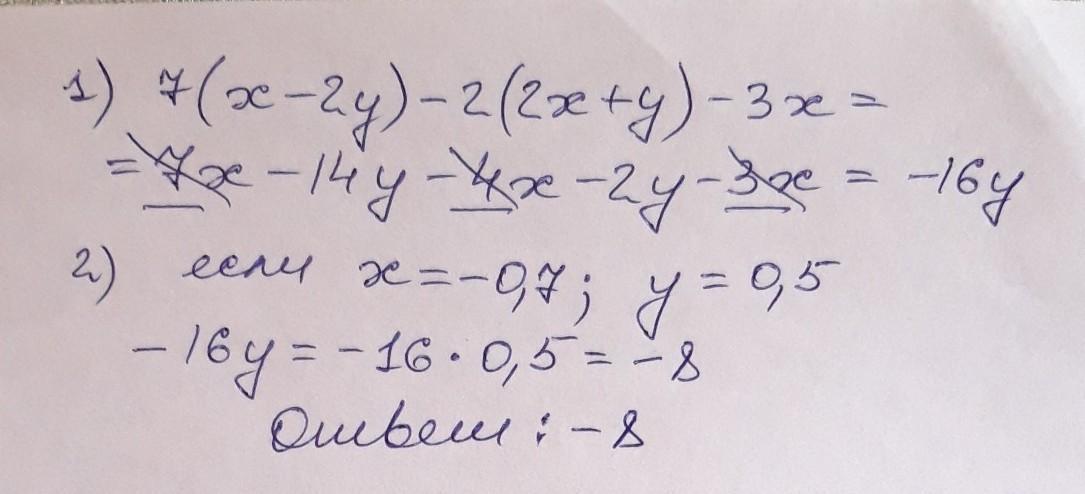 1) 7(x-2y)-2(2x+y)-3x=
=7x-14y-4x-2y-3x=-16y
2) если x=-0,7; y=0,5
-16y=-16·0,5=-8
Ответ: -8